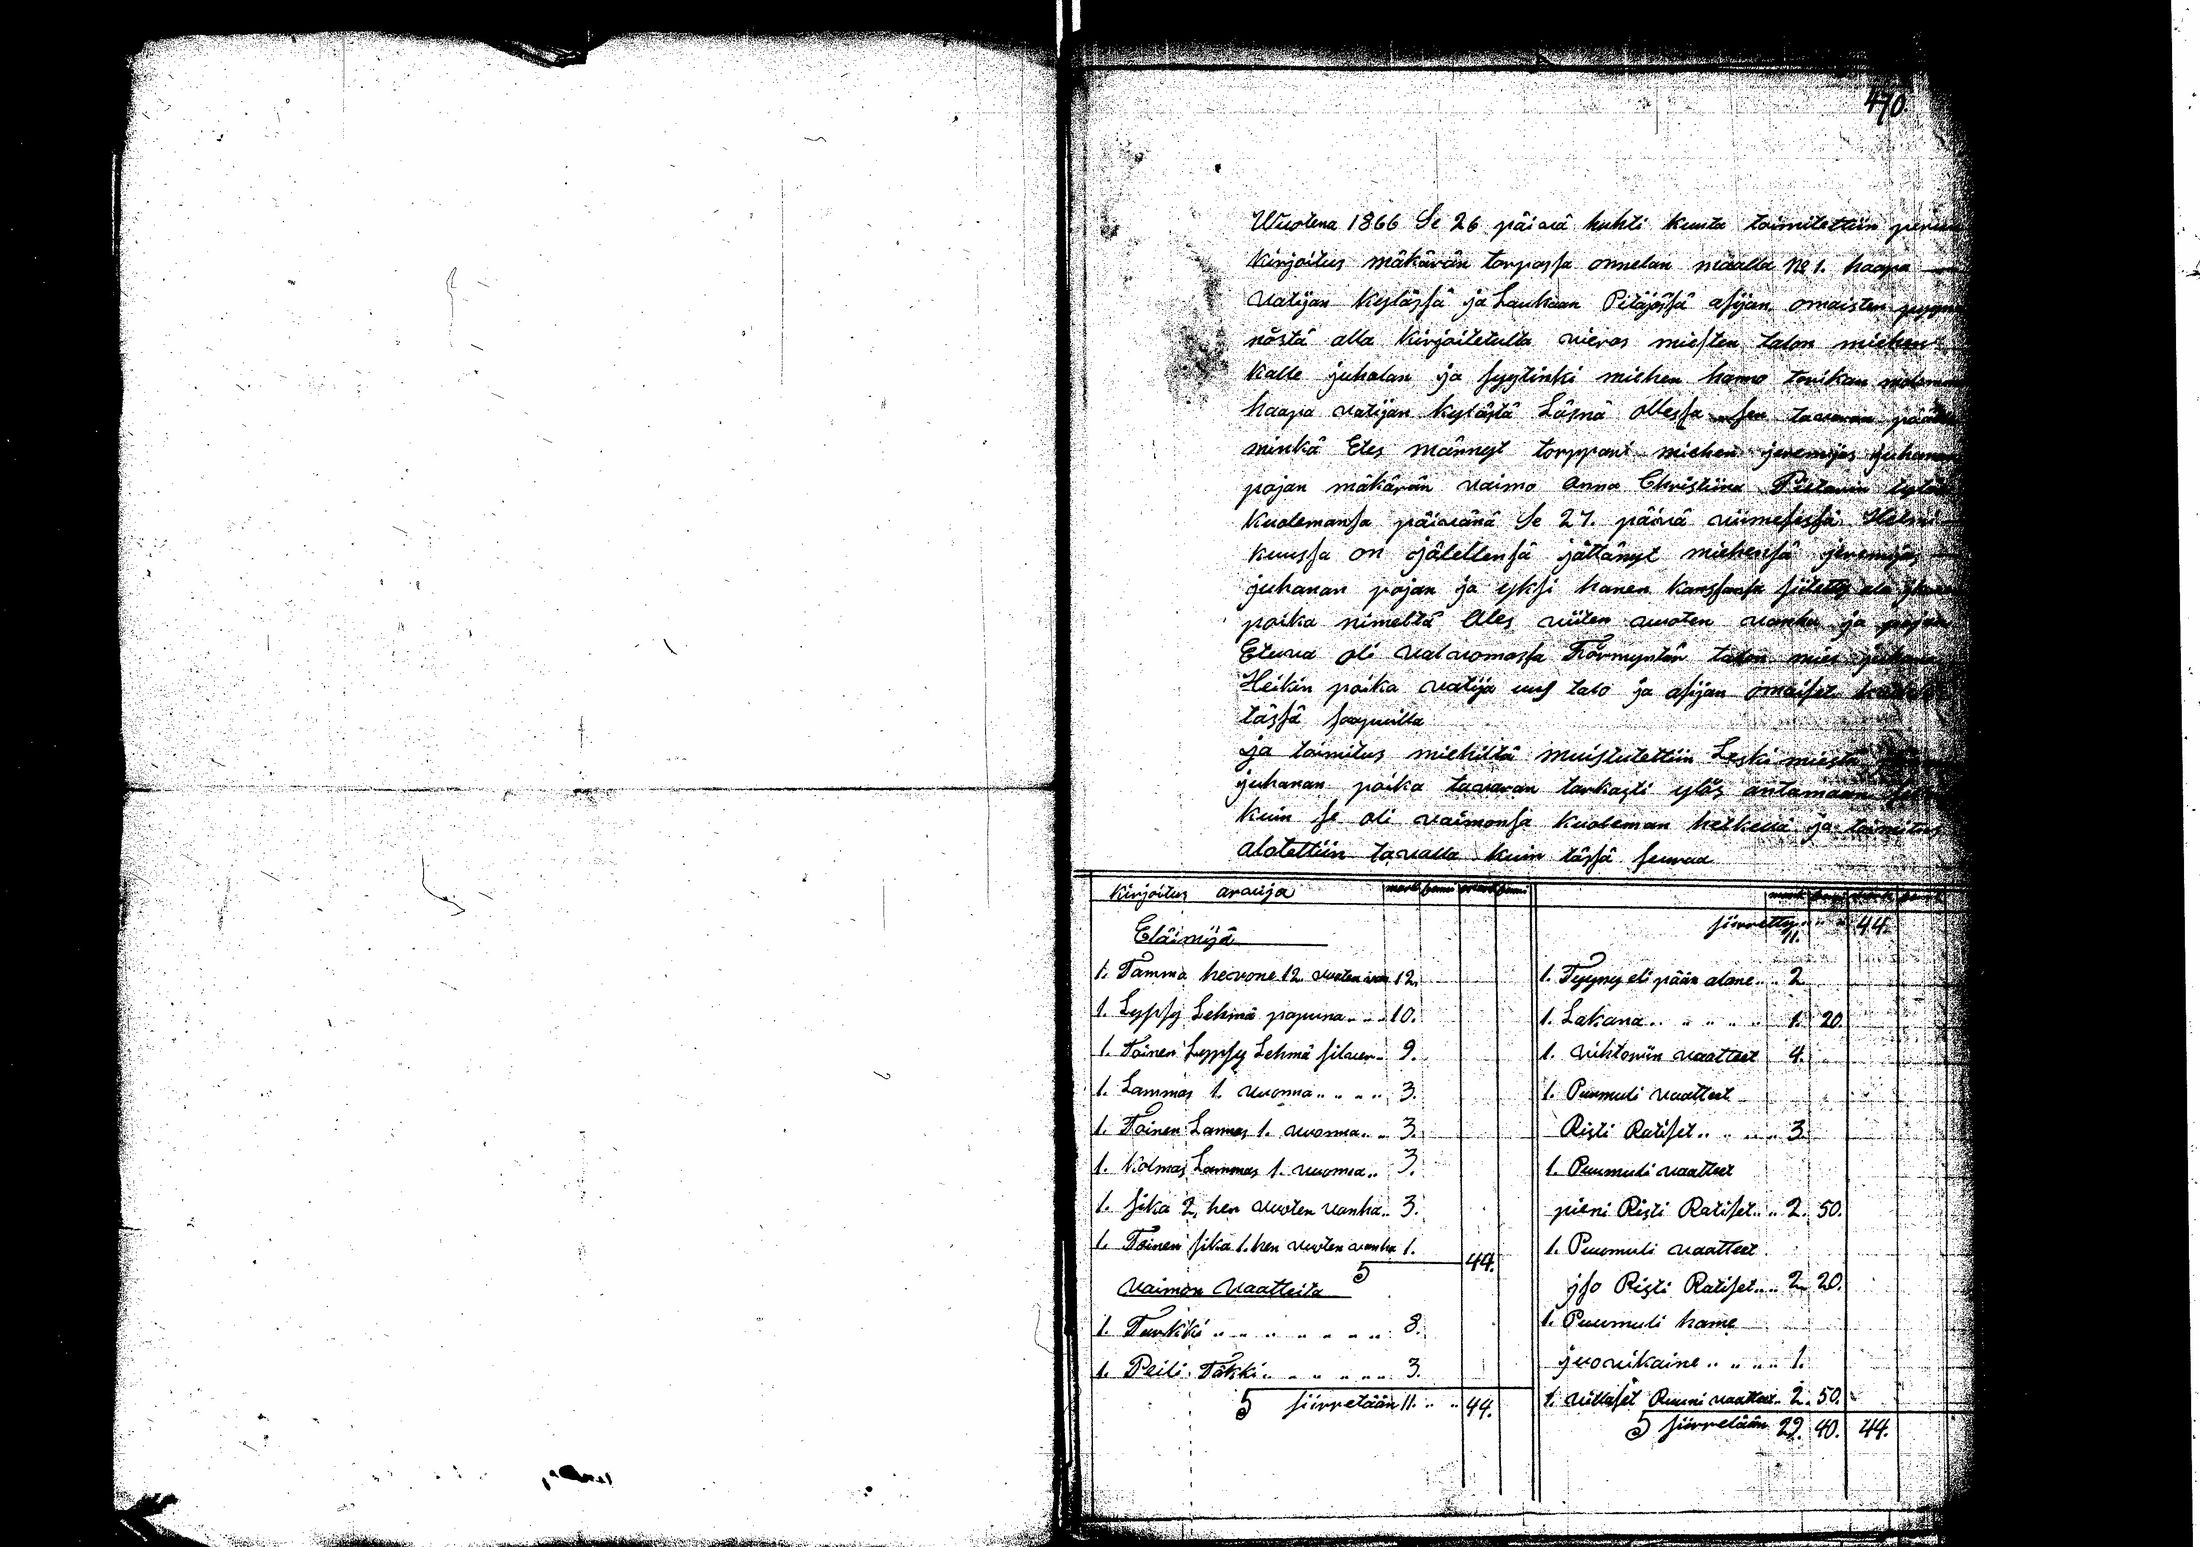 470
Wuotena 1866 Se 26 päivä huhti kuuta toimitettiin perun
kirjoitus mäkärän torpassa onnelan maalla No 1. haapa
vatijan kylässä ja Laukaan Pitäjässä asijan omaisten
nöstä alla kirjoitetulta vieras miesten talon miehen
kalle juholan ja syytinki miehen hanno
haapa vatijan kylästä Läsnä ollessa sen tavaran päälle
minkä Etes männyt torppari miehen jeremijas juhanan
pojan mäkärän vaimo anna Christiina Pietarin tytär
kuolemansa päivänä Se 27. päivä viimesessä Helmi
kuussa on jälellensä jättänyt miehensä jeremijas
juhanan pojan ja yksi hanen kanssansa siitetty
poika nimeltä Ales viiten vuoten vanha ja
Etuva oli valvomassa Förmyntär talon mies juhana
Heikin poika vatija uus talo ja asijan omaiset
tässä saapuilla
ja toimitus miehiltä muistutettiin Leski miestä
juhanan poika tavaran tarkasti ylös antamaan
kuin se oli vaimonsa kuoleman hetkellä ja toimitus
alotettiin tavalla kuin tässä seuraa
kirjoitus aravija
Eläimijä
1. Tamma hevone 12 vuoten van 12.
1. Lypsy Lehmä papuna .. .. 10.
1. Toinen Lypsy Lehmä silver .. 9.
1. Lammas 1. vuonna .. .. .. 3.
1. Toinen Lamas 1. vuonna .. .. 3.
1. Kolmas Lammas 1. vuonna .. 3.
1. sika 2. hen vuoten vanha .. 3.
1. Toinen sika 1. hen vuoten vanha 1. 44.
Vaimon Vaatteita
1. Turkki .. .. .. .. .. .. 8.
1. Peili Täkki .. .. .. .. .. 3.
siirretään 11. .. .. 44.
siirretty 11. .. .. 44.
1. Tyyny eli pään alane .. .. 2
1. Lakana .. .. .. .. .. 1. 20.
1. vihtoriin vaatteet 4.
1. Puumuli vaatteet
Risti Ratiset .. .. .. .. 3.
1. Puumuli vaatteet
pieni Risti Ratiset .. .. 2. 50.
1. Puumuli vaatteet
jso Risti Ratiset .. .. 2. 20.
1. Puumuli hame
juovikaine .. .. .. .. 1.
1. villaset Ruuni vaatteet .. 2. 50.
siirretään 29. 40. 44.